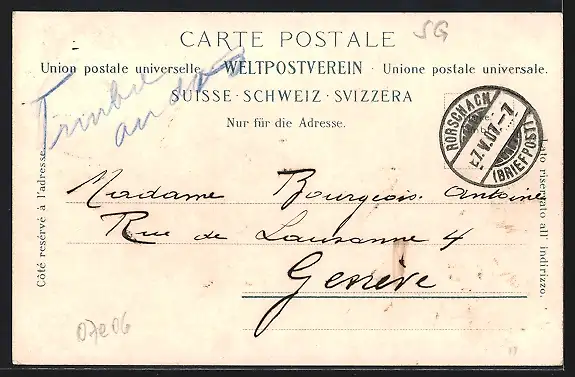 CARTE POSTALE
SG
Union postale universelle · WELTPOSTVEREIN · Unione postale universale.
SUISSE · SCHWEIZ · SVIZZERA
Nur für die Adresse.
Timbre
RORSCHACH
7.V.07.-7
(BRIEFPOST)
Côté reservé à l'adresse.
lato riservato all' indirizzo.
Madame Bourgeois. Antoine
Rue de Lausanne 4
Genève
07e06